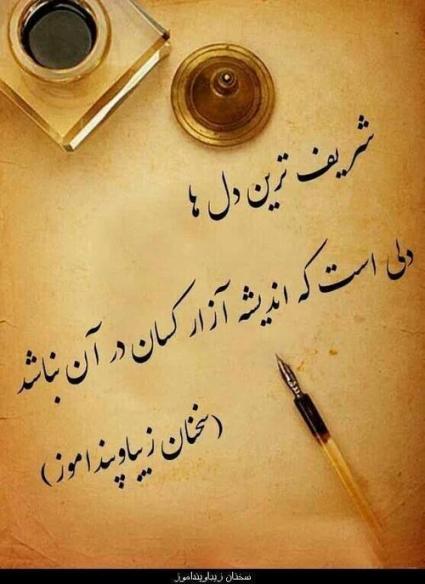 شریف ترین دل ها
دلی است که اندیشه آزار کسان در آن نباشد
(سخنان زیباوپنداموز)
سخنان زیباوپنداموز